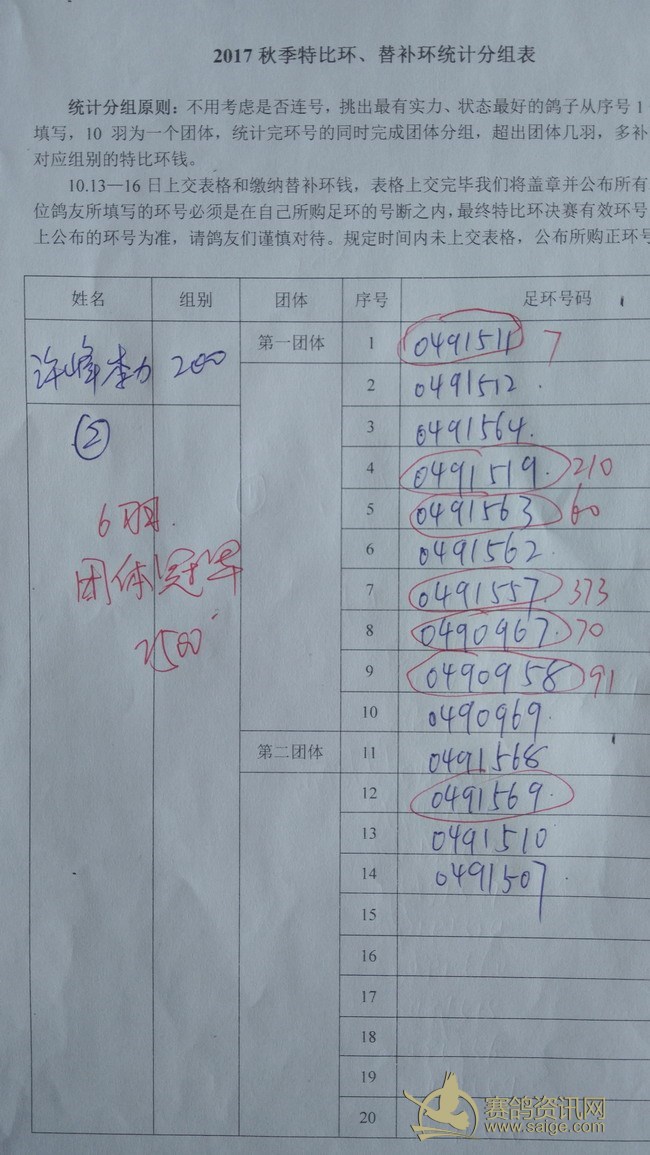 2017 秋季特比环、替补环统计分组表
统计分组原则：不用考虑是否连号，挑出最有实力、状态最好的鸽子从序号 1
填写，10 羽为一个团体，统计完环号的同时完成团体分组，超出团体几羽，多补
对应组别的特比环钱。
10.13—16 日上交表格和缴纳替补环钱，表格上交完毕我们将盖章并公布所有
位鸽友所填写的环号必须是在自己所购足环的号断之内，最终特比环决赛有效环号
上公布的环号为准，请鸽友们谨慎对待。规定时间内未上交表格，公布所购正环号
姓名 组别 团体 序号 足环号码
许峰李力 200 第一团体 1 0491511 7
2 0491512
② 3 0491564
4 0491519 210
6羽 5 0491563 60
6 0491562
团体冠军 7 0491557 373
2500 8 0490967 70
9 0490958 91
10 0490969
第二团体 11 0491568
12 0491569
13 0491510
14 0491507
15
16
17
18
19
20
赛鸽资讯网
www.saige.com